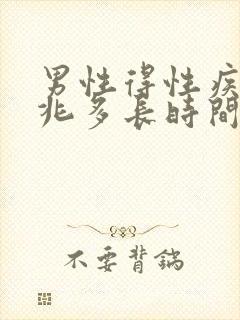 男性得性疾
兆多長時間
不要背鍋